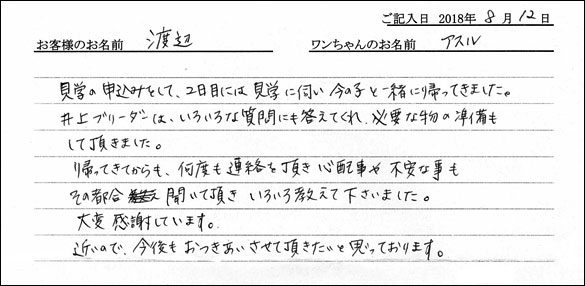 ご記入日 2018年 8月12日
お客様のお名前 渡辺 ワンちゃんのお名前 アスル
見学の申込みをして、2日目には見学に伺い今の子と一緒に帰ってきました。
井上ブリーダーは、いろいろな質問にも答えてくれ、必要な物の準備も
して頂きました。
帰ってきてからも、何度も連絡を頂き心配事や不安な事も
その都合 聞いて頂き いろいろ教えて下さいました。
大変感謝しています。
近いので、今後もおつきあいさせて頂きたいと思っております。